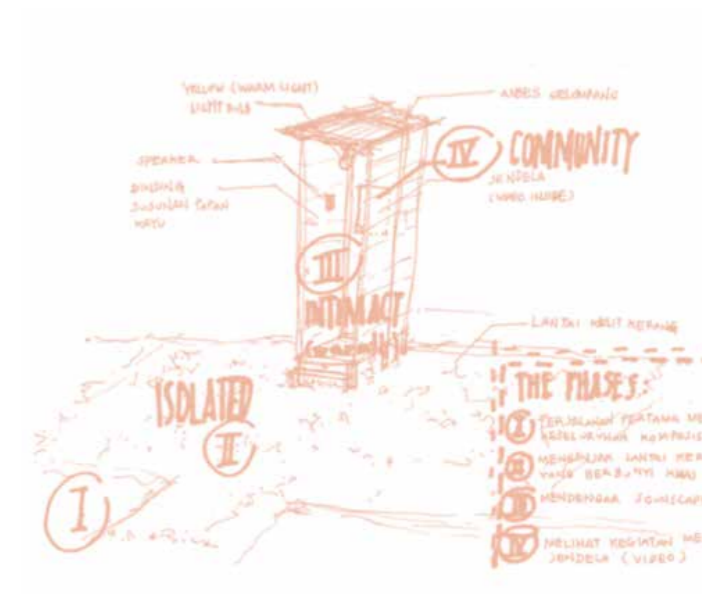 YELLOW (WARM LIGHT)
LIGHT BULB
ASBES GELOMBANG
SPEAKER
DINDING
SUSUNAN PAPAN
KAYU
IV COMMUNITY
JENDELA
(VIDEO INSIDE)
III
INTIMACY
(warmth)
LANTAI KULIT KERANG
ISOLATED
II
I
THE PHASES:
I PERJALANAN PERTAMA ME
KESELURUHAN KOMPOSIS
II MENGINJAK LANTAI KER
YANG BERBUNYI
III MENDENGAR SOUNSCAP
IV MELIHAT KEGIATAN ME
JENDELA (VIDEO)